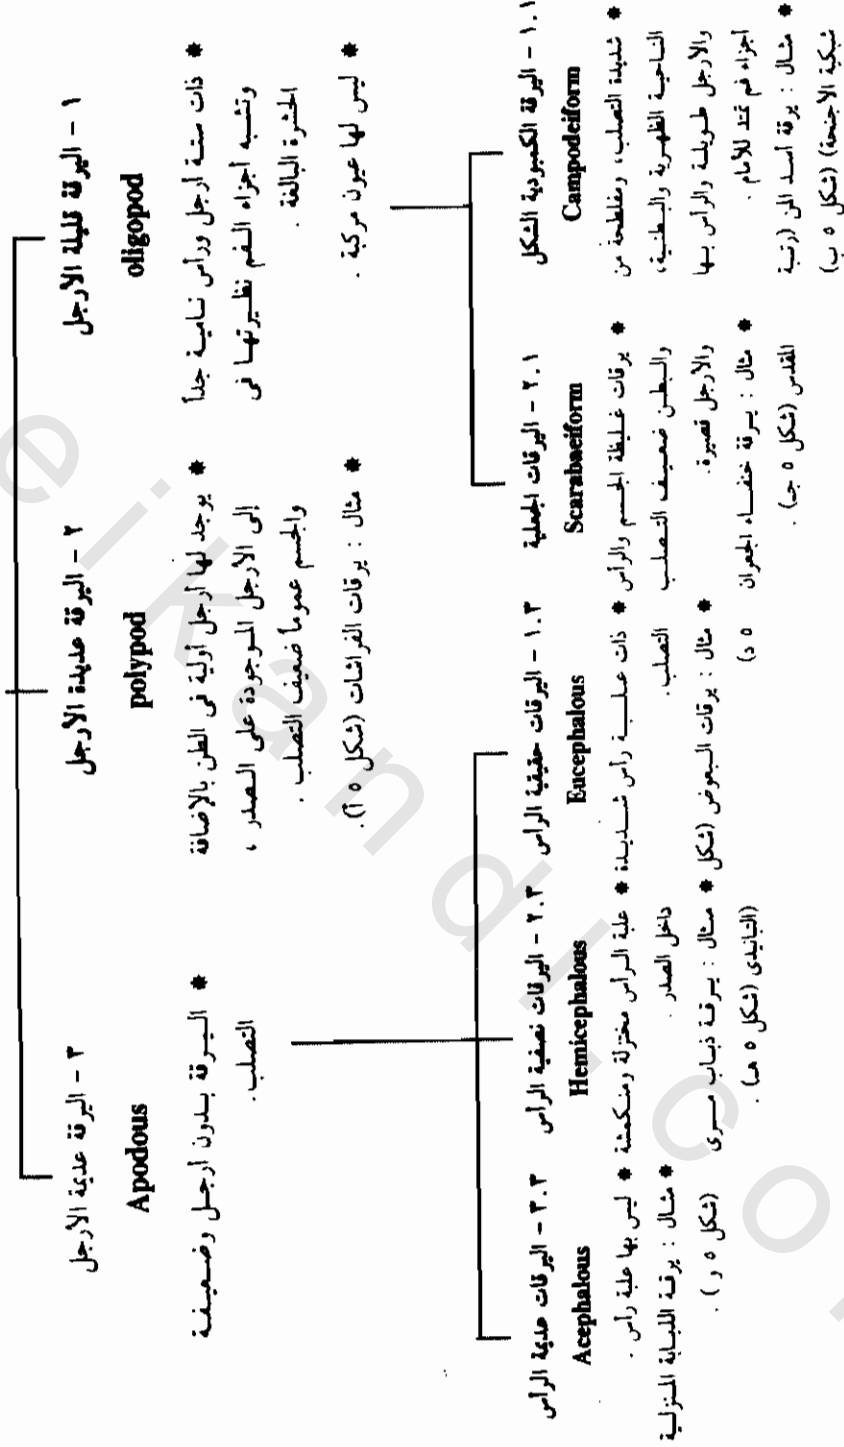 ١ - اليرقة قليلة الأرجل
oligopod
* ذات ستة أرجل ورأس نامية جداً
وتشبه أجزاء الفم نظيرتها فى
الحشرة البالغة .
* ليس لها عيون مركبة .
١.١ - اليرقة الكمبودية الشكل
Campodeiform
* شديدة التصلب، ومفلطحة من
الناحية الظهرية والبطنية،
والأرجل طويلة والرأس بها
أجزاء فم تمتد للأمام .
* مثال : يرقة أسد المن (رتبة
شبكية الأجنحة) (شكل ٥ ب)
٢.١ - اليرقات الجعلية
Scarabaeiform
* يرقات غليظة الجسم والرأس
والبطن ضعيف التصلب
والأرجل قصيرة.
* مثال : يرقة خنفساء الجعران
المقدس (شكل ٥ جـ) .
٢ - اليرقة عديدة الأرجل
polypod
* يوجد لها أرجل أولية فى الطن بالإضافة
إلى الأرجل الموجودة على الصدر ،
والجسم عموماً ضعيف التصلب .
* مثال : يرقات الفراشات (شكل ٥ أ).
٣ - اليرقة عديمة الأرجل
Apodous
* اليرقة بدون أرجل وضعيفة
التصلب.
١.٣ - اليرقات حقيقية الرأس
Eucephalous
* ذات علبة رأس شديدة
التصلب.
* مثال : يرقات البعوض (شكل
٥ د)
٢.٣ - اليرقات نصفية الرأس
Hemicephalous
* علبة الرأس مختزلة ومنكمشة
داخل الصدر .
* مثال : يرقة ذباب سرى
(التابانيدى (شكل ٥ هـ) .
٣.٣ - اليرقات عديمة الرأس
Acephalous
* ليس بها علبة رأس .
* مثال : يرقة الذبابة المنزلية
(شكل ٥ و ) .
eikandl.co